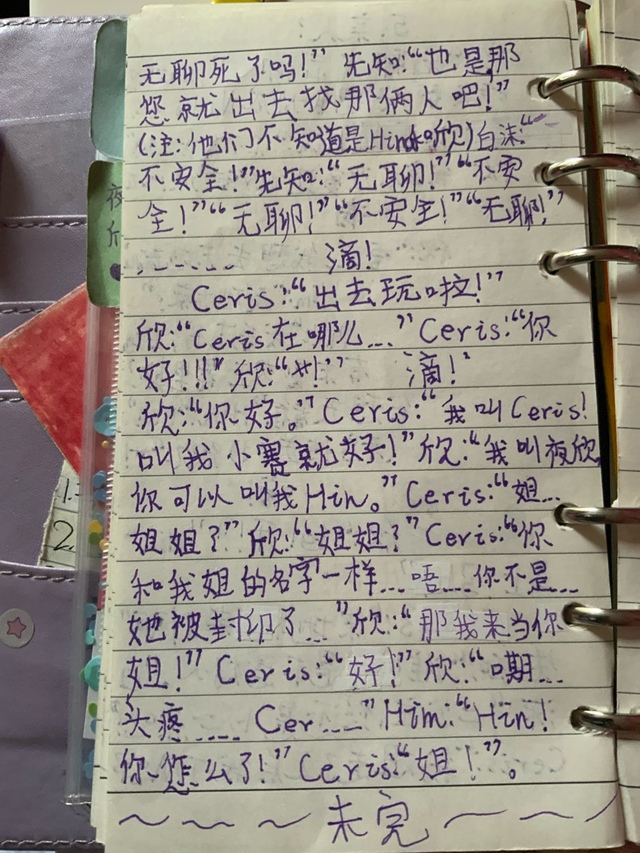 无聊死了吗!” 先知:“也是那
您就出去找那俩人吧!”
(注:他们不知道是Him和欣)白沫:“
不安全!”先知:“无聊!”“不安
全!”“无聊!”“不安全!”“无聊!”
....... 滴!
Ceris:“出去玩啦!”
欣:“Ceris在哪么...”Ceris:“你
好!!!”欣:“艹!” 滴!
欣:“你好。”Ceris:“我叫Ceris!
叫我小赛就好!”欣:“我叫夜欣
你可以叫我Hin。”Ceris:“姐...
姐姐?”欣:“姐姐?”Ceris:“你
和我姐的名字一样...唔...你不是...
她被封印了...”欣:“那我来当你
姐!”Ceris:“好!”欣:“嘶...
头疼.... Cer....”Him:“Hin!
你怎么了!”Ceris:“姐!”。
~~~未完~~~
夜
欣
1.
2.